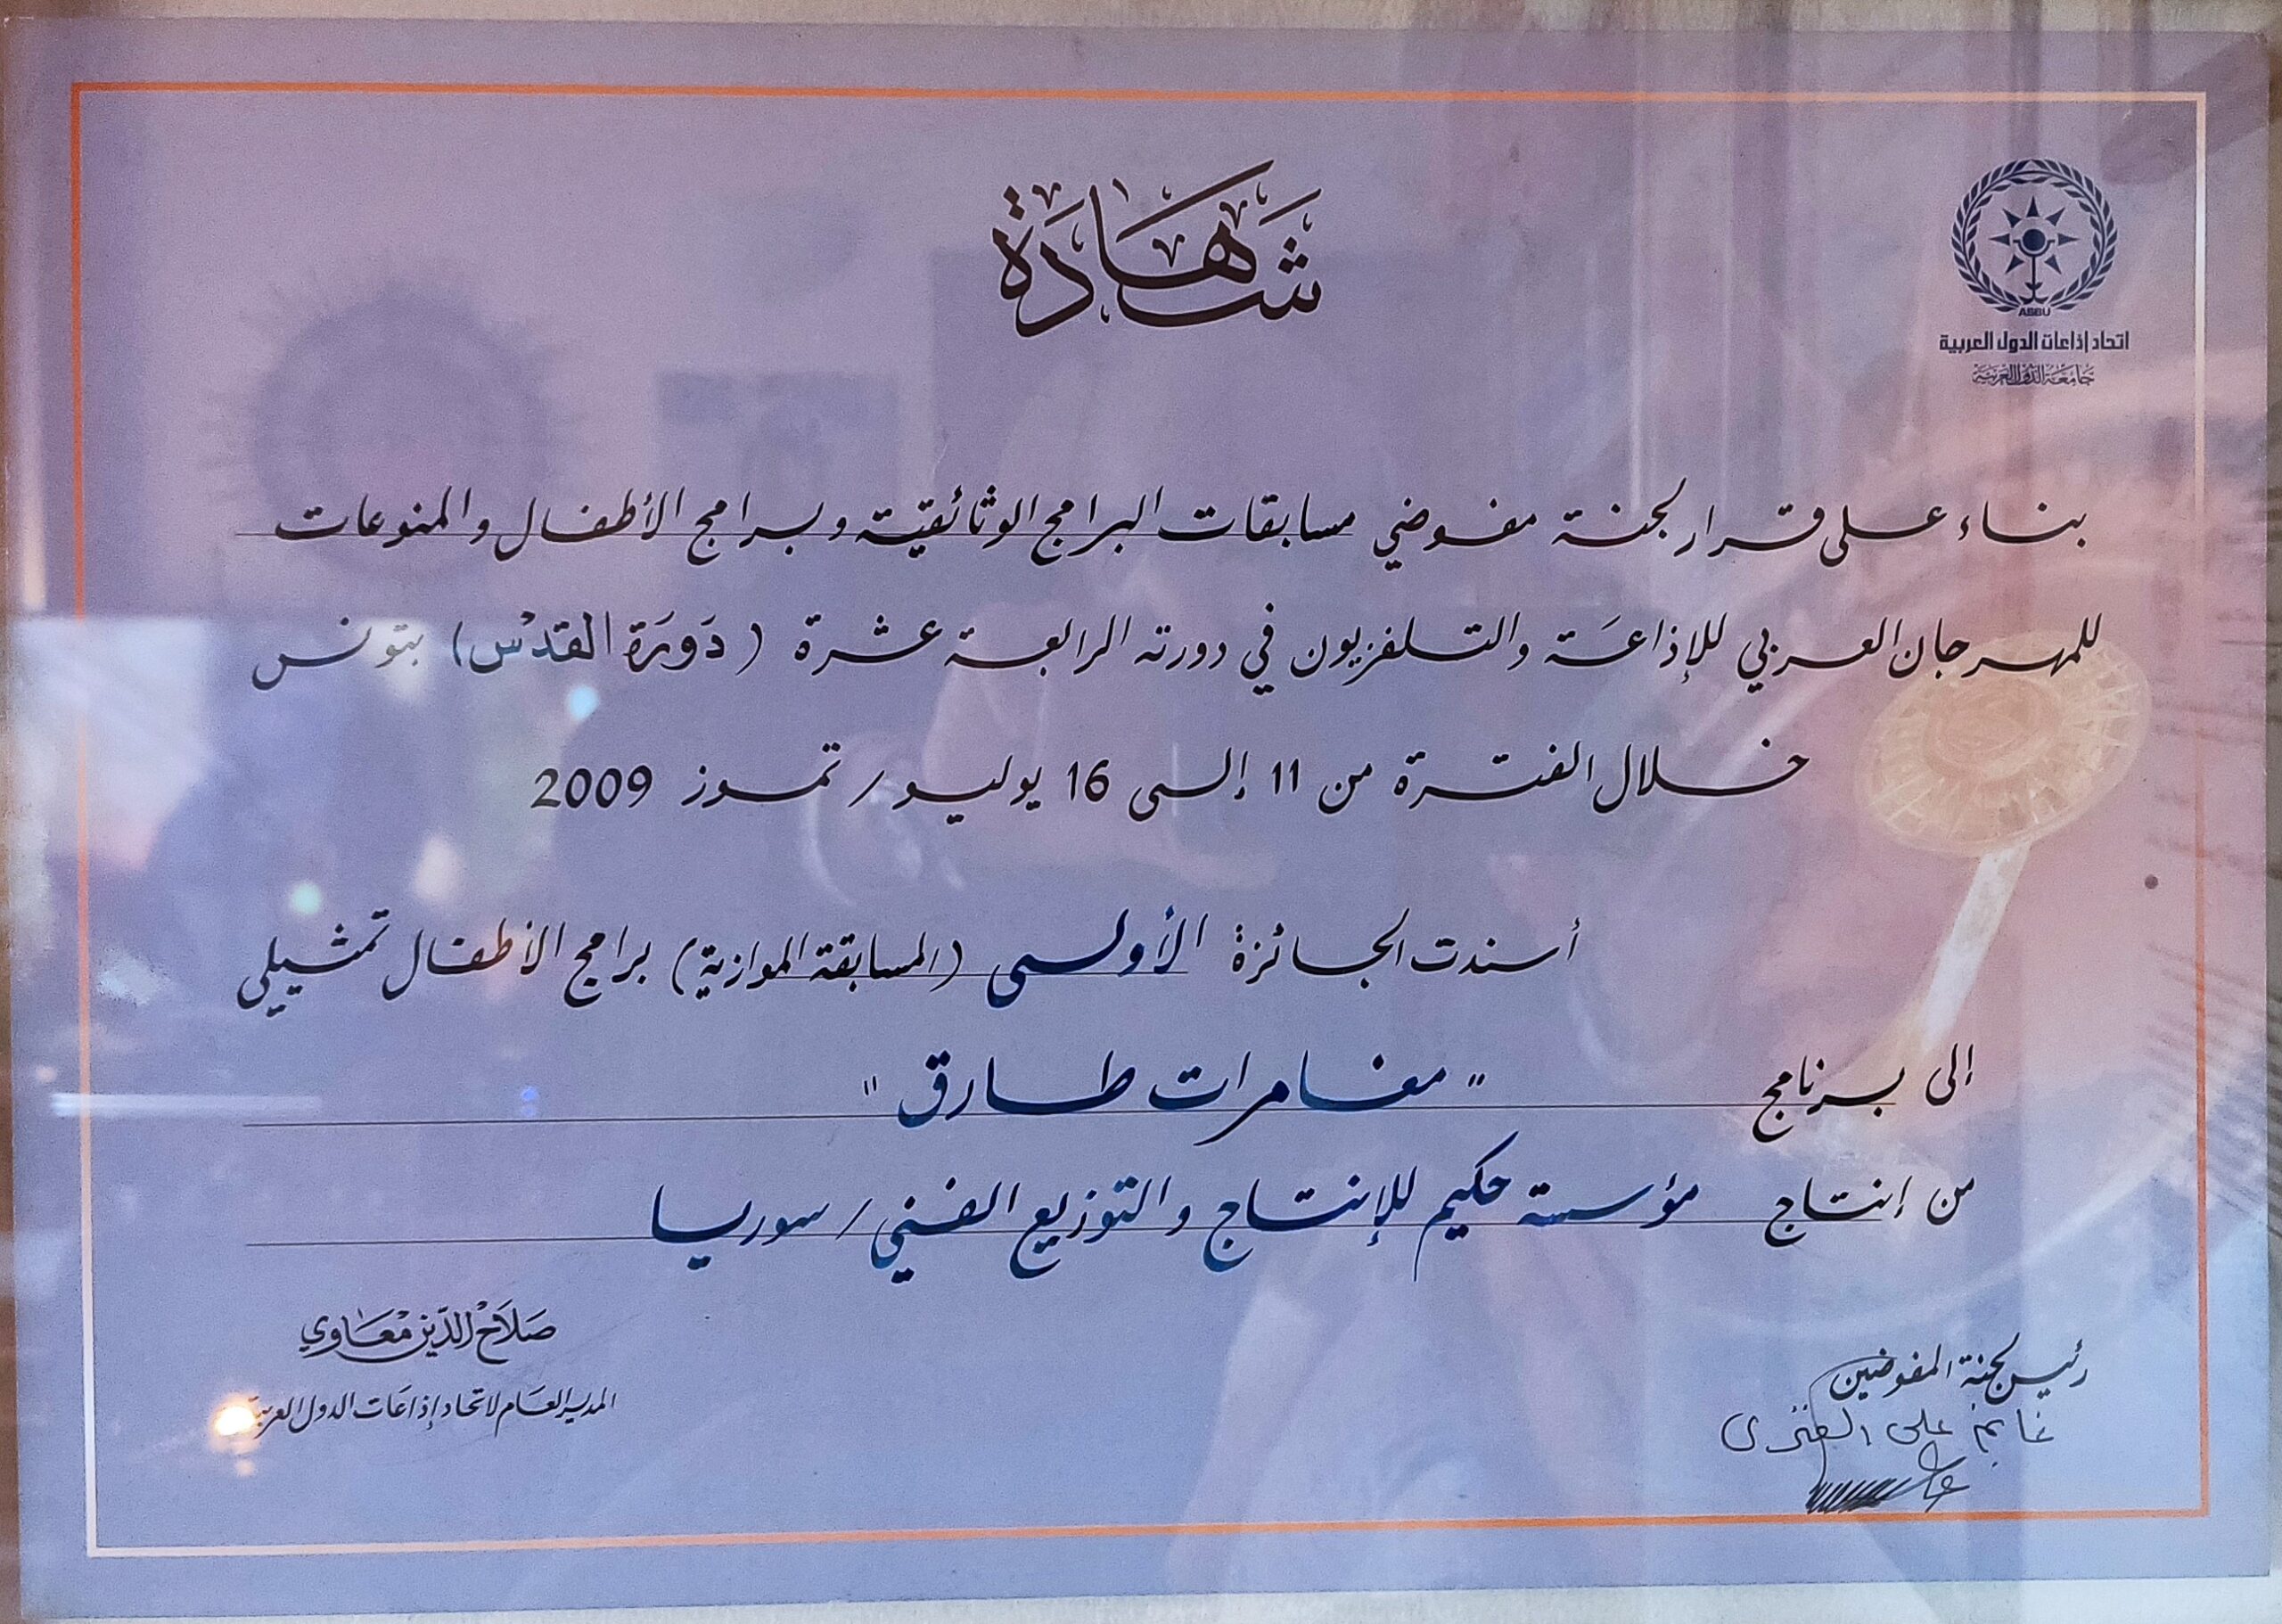 شهادة
ASBU
اتحاد إذاعات الدول العربية
جامعة الدول العربية
بناء على قرار لجنة مفوضي مسابقات البرامج الوثائقية وبرامج الأطفال والمنوعات
للمهرجان العربي للإذاعة والتلفزيون في دورته الرابعة عشرة (دورة القدس) بتونس
خلال الفترة من 11 إلى 16 يوليو/تموز 2009
أسندت الجائزة الأولى (المسابقة الموازية) برامج الأطفال تمثيلي
إلى برنامج "مغامرات طارق"
من إنتاج مؤسسة حكيم للإنتاج والتوزيع الفني/سوريا
رئيس لجنة المفوضين
على
صلاح الدين معاوي
المدير العام لاتحاد إذاعات الدول العربية